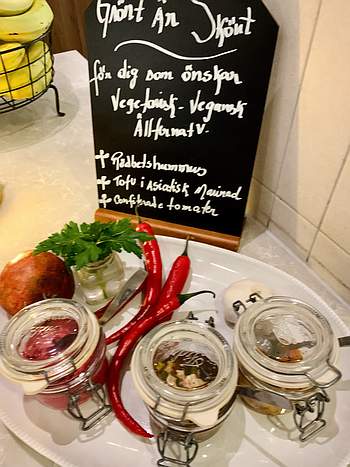 Grönt Är Skönt
för dig som önskar
Vegetarisk- Vegansk
Alternativ.
+ Rödbetshummus
+ Tofu i Asiatisk Marinad
+ Confiterade tomater